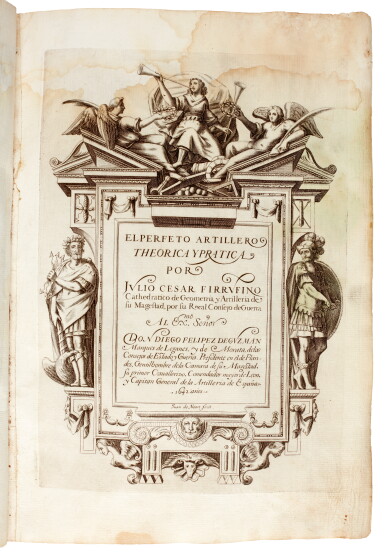 EL PERFETO ARTILLERO
THEORICA Y PRATICA
POR
JVLIO CESAR FIRRVFINO
Cathedratico de Geometria y Artilleria de
su Magestad, por su Real Consejo de Guerra.
AL Ex.mo Señor
DON DIEGO FELIPEZ DE GVZMAN
Marques de Leganes, y de Morata, de los
Consejos de Estado y Guerra, Presidente en el de Flan-
des, Gentilhombre de la Camara de su Magestad,
su primer Cavallerizo, Comendador mayor de Leon,
y Capitan General de la Artilleria de España.
1642 anos
Juan de Noort fecit